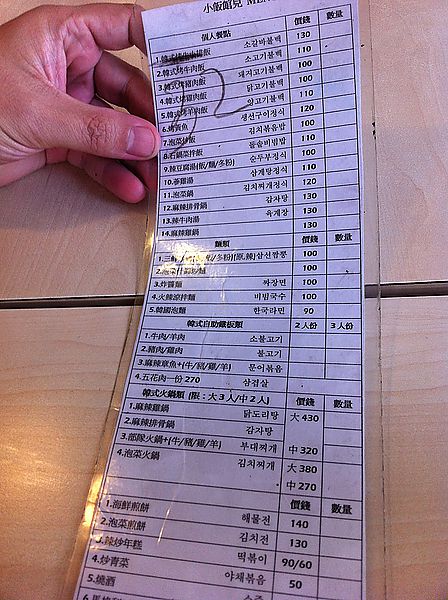 小飯館兒 MENU
個人餐點 價錢 數量
1.韓式烤牛小排飯 소갈비불백 130
2.韓式烤牛肉飯 소고기불백 110
3.韓式烤豬肉飯 돼지고기불백 100
4.韓式烤雞肉飯 닭고기불백 100
5.韓式烤羊肉飯 양고기불백 110
6.烤黃魚 생선구이정식 120
7.泡菜炒飯 김치볶음밥 100
8.石鍋菜拌飯 돌솥비빔밥 110
9.辣豆腐湯(飯/麵/多粉) 순두부정식 100
10.蔘雞湯 삼계탕정식 110
11.泡菜鍋 김치찌개정식 120
12.麻辣排骨鍋 감자탕 130
13.辣牛肉湯 육계장 130
14.麻辣雞鍋 130
麵類 價錢 數量
/多粉)(原.辣)삼선짬뽕 100
100
3.炸醬麵 짜장면 100
4.火辣涼拌麵 비빔국수 100
5.韓國泡麵 한국라면 90
韓式自助鐵板類 2人份 3人份
1.牛肉/羊肉 소불고기
2.豬肉/雞肉 불고기
3.麻辣章魚+(牛/豬/雞/羊) 문어볶음
4.五花肉一份 270 삼겹살
韓式火鍋類 (限：大3人/中2人) 價錢 數量
1.麻辣雞鍋 닭도리탕 大 430
2.麻辣排骨鍋 감자탕
3.部隊火鍋+(牛/豬/雞/羊) 부대찌개 中 320
4.泡菜火鍋 김치찌개 大 380
中 270
價錢 數量
1.海鮮煎餅 해물전 140
2.泡菜煎餅 김치전 130
3.辣炒年糕 떡볶이 90/60
4.炒青菜 야채볶음 50
5.燒酒 소주